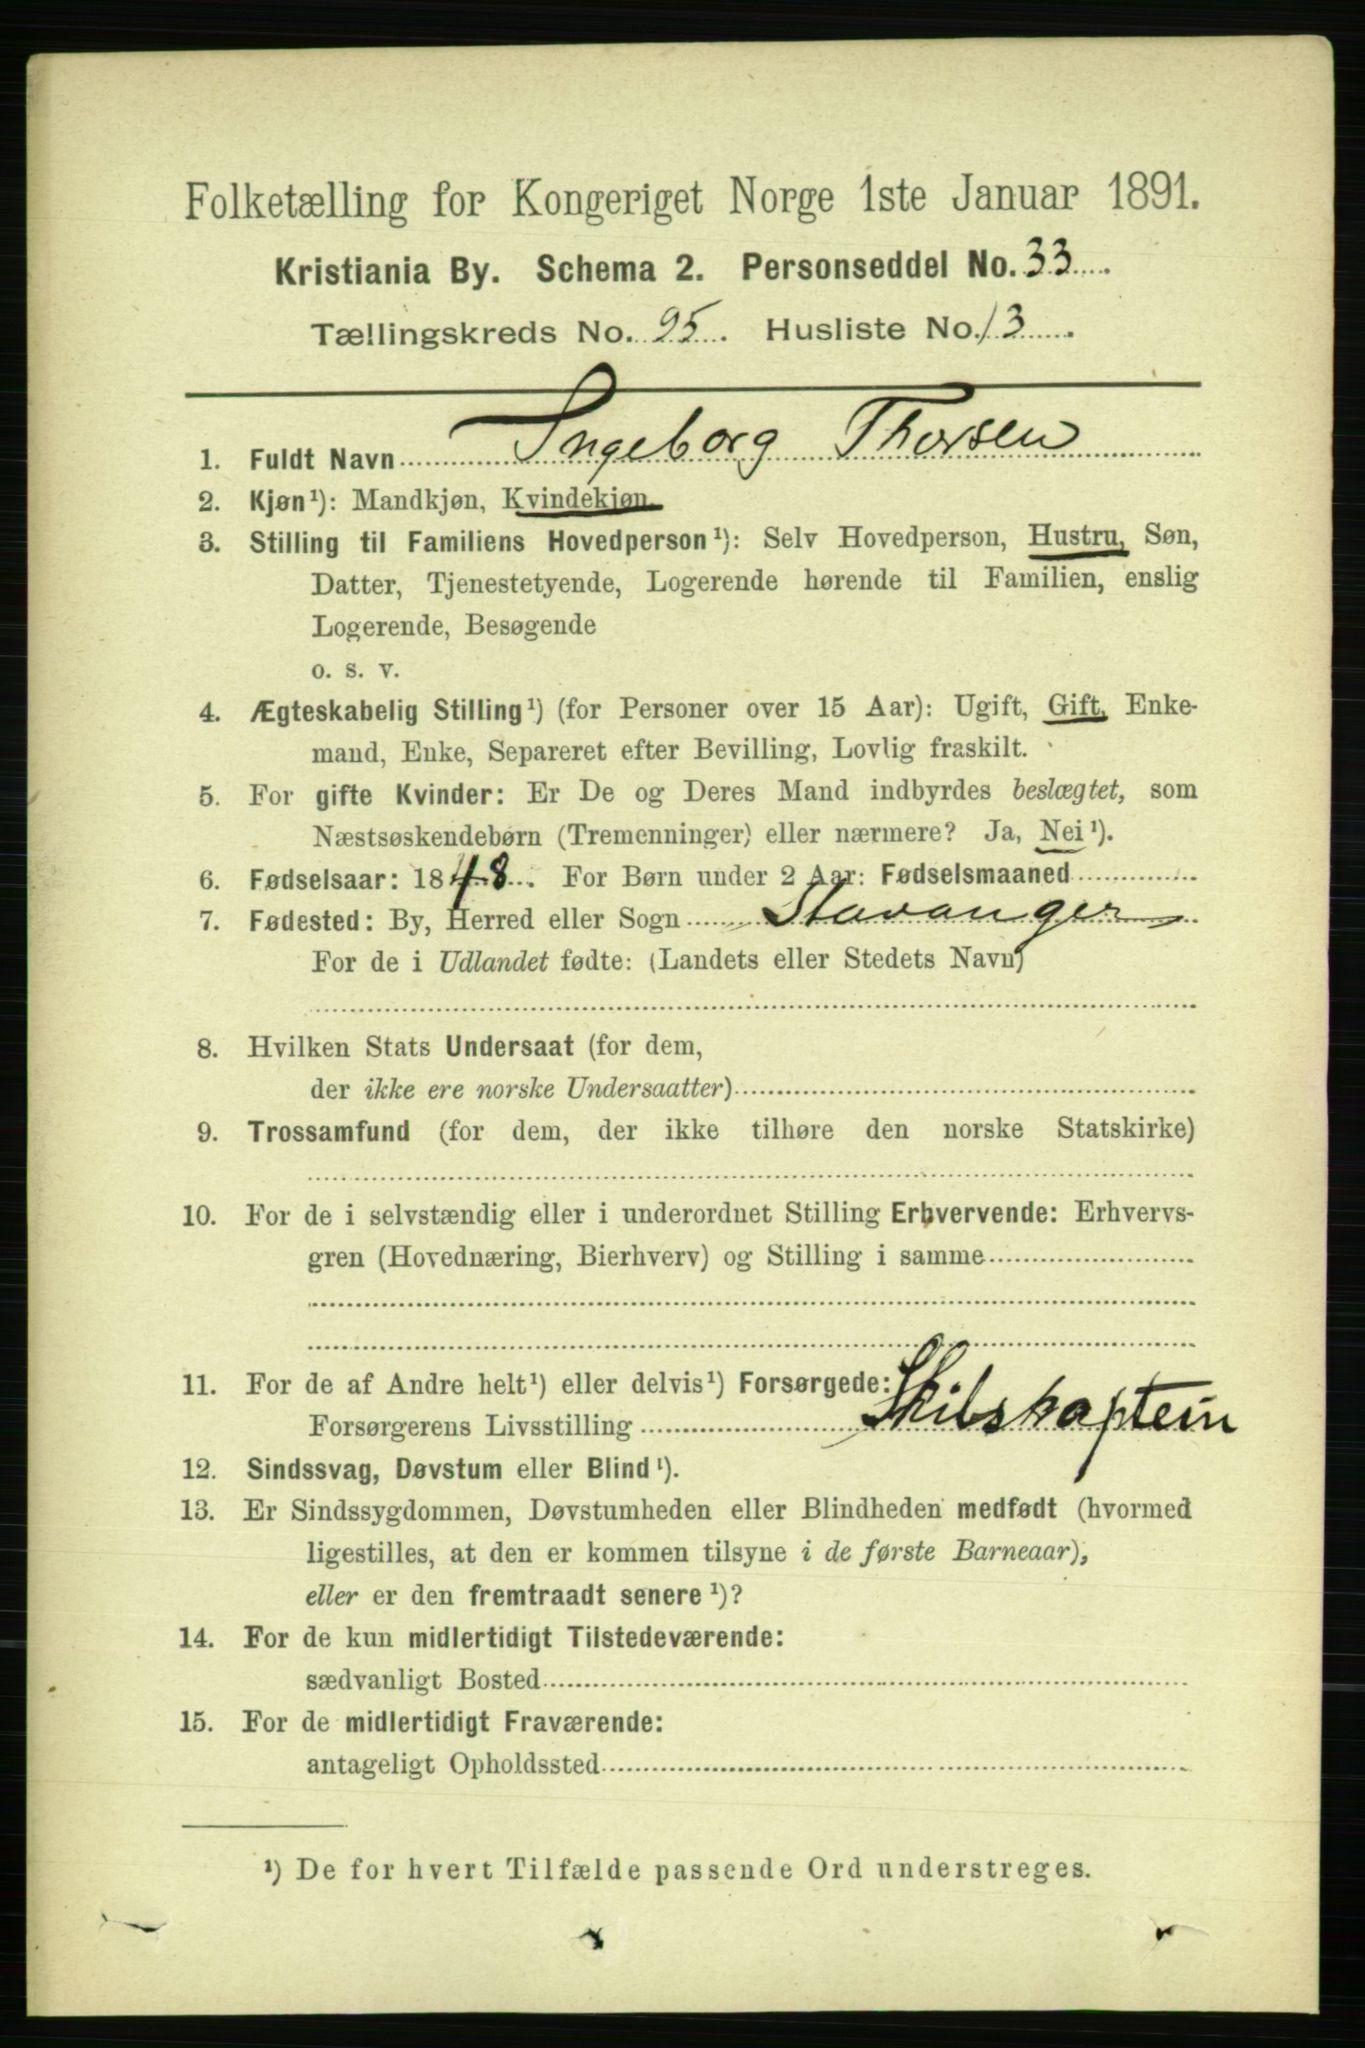 Folketælling for Kongeriget Norge 1ste Januar 1891.
Kristiania By. Schema 2. Personseddel No. 33
Tællingskreds No. 95. Husliste No. 13
1. Fuldt Navn Ingeborg Thorsen
2. Kjøn¹): Mandkjøn, Kvindekjøn.
3. Stilling til Familiens Hovedperson¹): Selv Hovedperson, Hustru, Søn,
Datter, Tjenestetyende, Logerende hørende til Familien, enslig
Logerende, Besøgende
o. s. v.
4. Ægteskabelig Stilling¹) (for Personer over 15 Aar): Ugift, Gift, Enke-
mand, Enke, Separeret efter Bevilling, Lovlig fraskilt.
5. For gifte Kvinder: Er De og Deres Mand indbyrdes beslægtet, som
Næstsøskendebørn (Tremenninger) eller nærmere? Ja, Nei¹).
6. Fødselsaar: 1848. For Børn under 2 Aar: Fødselsmaaned
7. Fødested: By, Herred eller Sogn Stavanger
For de i Udlandet fødte: (Landets eller Stedets Navn)
8. Hvilken Stats Undersaat (for dem,
der ikke ere norske Undersaatter)
9. Trossamfund (for dem, der ikke tilhøre den norske Statskirke)
10. For de i selvstændig eller i underordnet Stilling Erhvervende: Erhvervs-
gren (Hovednæring, Bierhverv) og Stilling i samme
11. For de af Andre helt¹) eller delvis¹) Forsørgede:
Forsørgerens Livsstilling Skibskaptein
12. Sindssvag, Døvstum eller Blind¹).
13. Er Sindssygdommen, Døvstumheden eller Blindheden medfødt (hvormed
ligestilles, at den er kommen tilsyne i de første Barneaar),
eller er den fremtraadt senere¹)?
14. For de kun midlertidigt Tilstedeværende:
sædvanligt Bosted
15. For de midlertidigt Fraværende:
antageligt Opholdssted
¹) De for hvert Tilfælde passende Ord understreges.